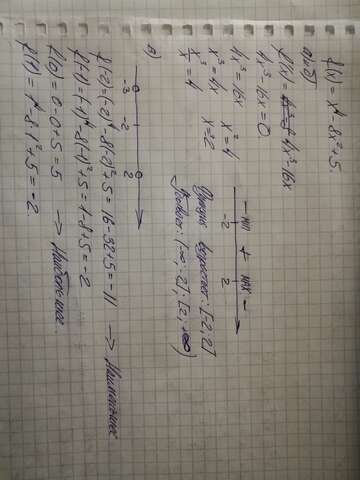 f(x) = x⁴ - 8x² + 5.
а) и б)
f'(x) = 4x³ - 16x
4x³ - 16x = 0.
4x³ = 16x x² = 4
x³ = 4x x = 2
x³/x = 4
- min + max -
-2 2
Функция возрастает: [-2, 2]
Убывает: [-∞; -2]; [2; +∞)
в)
-3 -2 2
f(-2) = (-2)⁴ - 8(-2)² + 5 = 16 - 32 + 5 = -11 → Наименьшее
f(-1) = (-1)⁴ - 8(-1)² + 5 = 1 - 8 + 5 = -2
f(0) = 0 - 0 + 5 = 5 → Наибольшее.
f(1) = 1⁴ - 8·1² + 5 = -2.